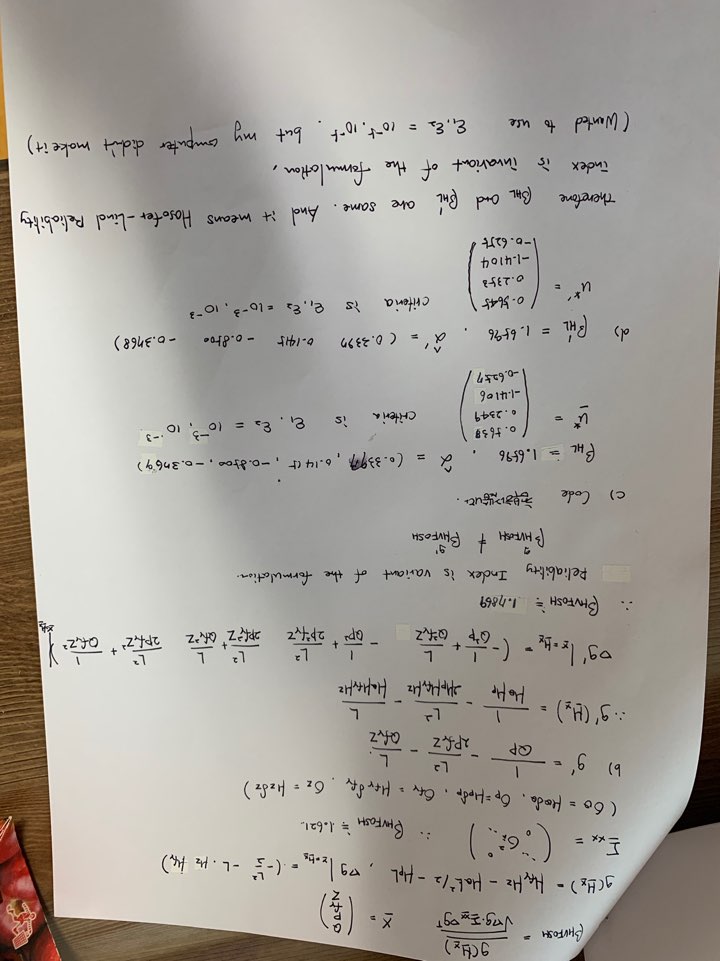 β_MVFOSM = g(μ_x̄) / √(∇g·Σ_x̄x̄ ∇gᵀ) X̄ = (Q P f_Y Z)
g(μ_x̄) = μ_fY μ_Z - μ_Q L²/2 - μ_P L , ∇g|x̄=μ_x̄ = (-L²/2 -L · μ_Z μ_fY)
Σ_xx = ( ⋱ 0 σ_x² 0 ⋱ ) ∴ β_MVFOSM ≒ 1.621..
(σ_Q = μ_Q δ_Q, σ_P = μ_P δ_P, σ_fY = μ_fY δ_fY, σ_Z = μ_Z δ_Z)
b) g' = 1/QP - L²/2Pf_YZ - L/Qf_YZ.
∴ g'(μ_x̄) = 1/μ_Qμ_P - L²/2μ_Pμ_fYμ_Z - L/μ_Qμ_fYμ_Z
∇g'|x̄=μ_x̄ = (-1/Q²P + L/Q²f_YZ -1/QP² + L²/2P²f_YZ L²/2Pf_Y²Z + L/Qf_Y²Z L²/2Pf_YZ² + L/Qf_YZ²)|x̄=μ_x̄
∴ β_MVFOSM ≒ 1.7869
Reliability Index is variant of the formulation.
β^g_MVFOSM ≠ β^g'_MVFOSM
c) Code
β_HL = 1.6596 , α̂ = (0.3397, 0.1415, -0.8500, -0.3769)
ū* = (0.5638 0.2349 -1.4106 -0.6257) criteria is ε₁, ε₂ = 10⁻³, 10⁻³.
d) β'_HL = 1.6596 , α̂' = (0.3397 0.1415 -0.8500 -0.3768)
u*' = (0.5645 0.2353 -1.4104 -0.6255) criteria is ε₁, ε₂ = 10⁻³, 10⁻³
Therefore β_HL and β'_HL are same. And it means Hasofer-Lind Reliability
index is invariant of the formulation,
(Wanted to use ε₁, ε₂ = 10⁻⁵, 10⁻⁵. but my computer didn't make it)